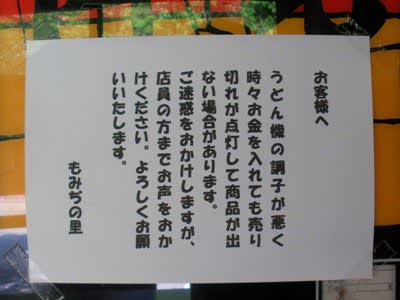 お客様へ
うどん機の調子が悪く
時々お金を入れても売り
切れが点灯して商品が出
ない場合があります。
ご迷惑をおかけしますが、
店員の方までお声をおか
けください。よろしくお願
いいたします。
もみぢの里